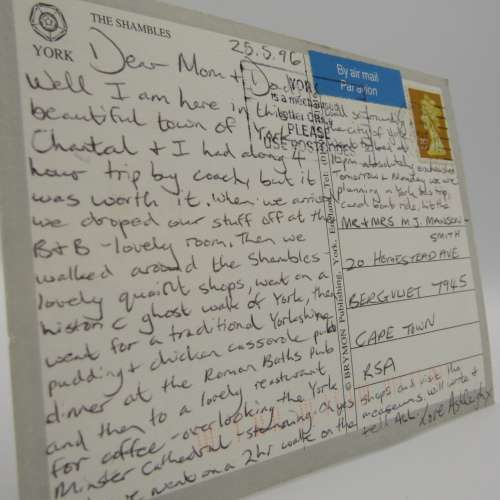 THE SHAMBLES
YORK
25.5.96
Dear Mom + Dad
Well I am here in this
beautiful town of York.
Chantal + I had along 4
hour trip by coach, but it
was worth it. When we arrived
we droped our stuff off at the
B+B - lovely room. Then we
walked around the Shambles -
lovely quaint shops, went on a
historic ghost walk of York, then
went for a traditional Yorkshire
pudding + chicken casserole pub
dinner at the Roman Baths Pub
and then to a lovely restaurant
for coffee - overlooking the York
Minster Cathedral - stunning.
went on a 2hr walk on the
the city of York
10pm absolutely exhausted
Tomorrow & Monday we are
planning a York bus trip,
canal boat ride, visit the
shops and visit the
museums. will write +
tell all. Love
By air mail
Par avion
PLEASE
USE POSTCODE
© BRYMON Publishing, York, England. Tel:
MR + MRS M.J. MANSON-
SMITH
20 HOMESTEAD AVE
BERGVLIET 7945
CAPE TOWN
RSA